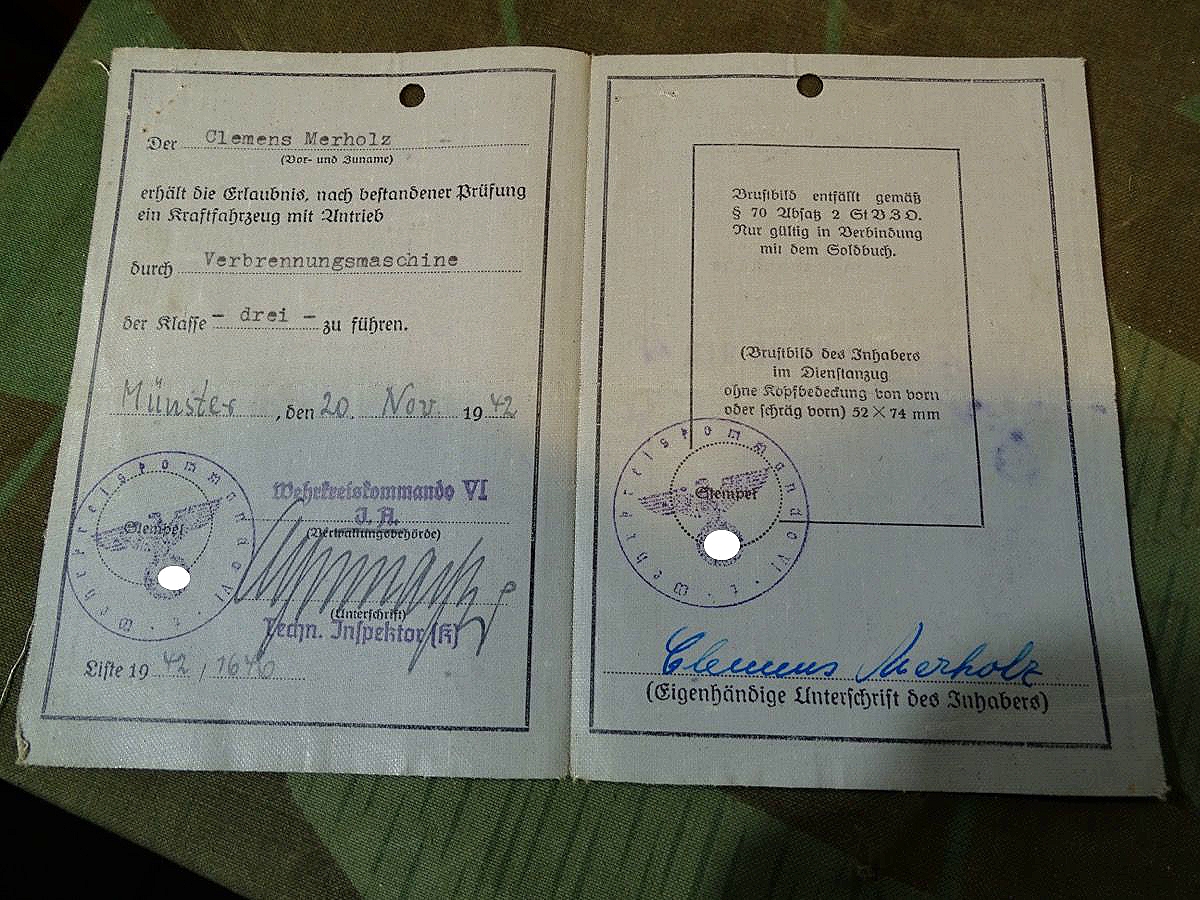 Der Clemens Merholz
(Vor- und Zuname)
erhält die Erlaubnis, nach bestandener Prüfung
ein Kraftfahrzeug mit Antrieb
durch Verbrennungsmaschine
der Klasse - drei - zu führen.
Münster, den 20. Nov. 1942
Wehrkreiskommando VI
Stempel
I. A.
(Verwaltungsbehörde)
(Unterschrift)
Techn. Inspektor (K)
Liste 19 42 / 1646
Brustbild entfällt gemäß
§ 70 Absatz 2 StVZO.
Nur gültig in Verbindung
mit dem Soldbuch.
(Brustbild des Inhabers
im Dienstanzug
ohne Kopfbedeckung von vorn
oder schräg vorn) 52 × 74 mm
Wehrkreiskommando VI
Stempel
Clemens Merholz
(Eigenhändige Unterschrift des Inhabers)